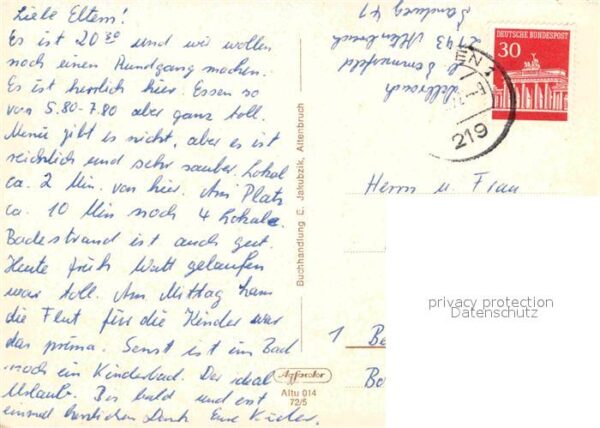 Liebe Eltern!
Es ist 20 30 und wir wollen
noch einen Rundgang machen.
Es ist herrlich hier. Essen so
von 5.80-7.80 aber ganz toll.
Menü gibt es nicht, aber es ist
reichlich und sehr sauber. Lokal
ca. 2 Min. von hier. Am Platz
ca. 10 Min noch 4 Lokale.
Badestrand ist auch gut.
Heute früh Watt gelaufen
war toll. Am Mittag kam
die Flut für die Kinder war
das prima. Sonst ist im Bad
noch ein Kinderbad. Der ideal
Urlaub. Bis bald und erst
einmal herzlichen Dank Eure Kinder.
Buchhandlung E. Jakubzik, Altenbruch
Altu 014
72/5
2143 Altenbruch
Sandweg 41
DEUTSCHE BUNDESPOST
30
219
Herrn u. Frau
1 Be
privacy protection
Datenschutz